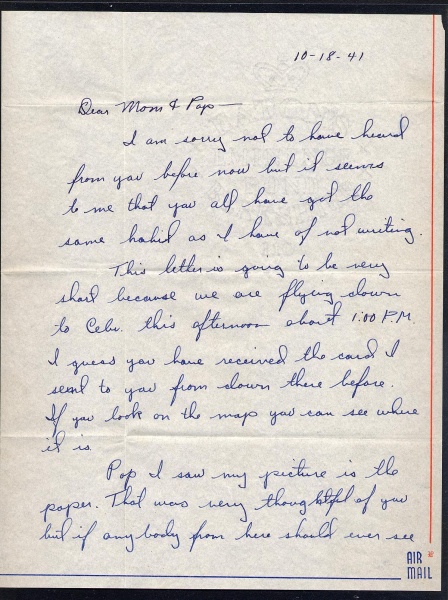 10-18-41
Dear Mom & Pop—
I am sorry not to have heard
from you before now but it seems
to me that you all have got the
same habit as I have of not writing.
This letter is going to be very
short because we are flying down
to Cebu. this afternoon about 1:00 P.M
I guess you have received the card I
sent to you from down there before.
If you look on the map you can see where
it is.
Pop I saw my picture is the
paper. That was very thoughtful of you
but if any body from here should ever see
AIR
MAIL